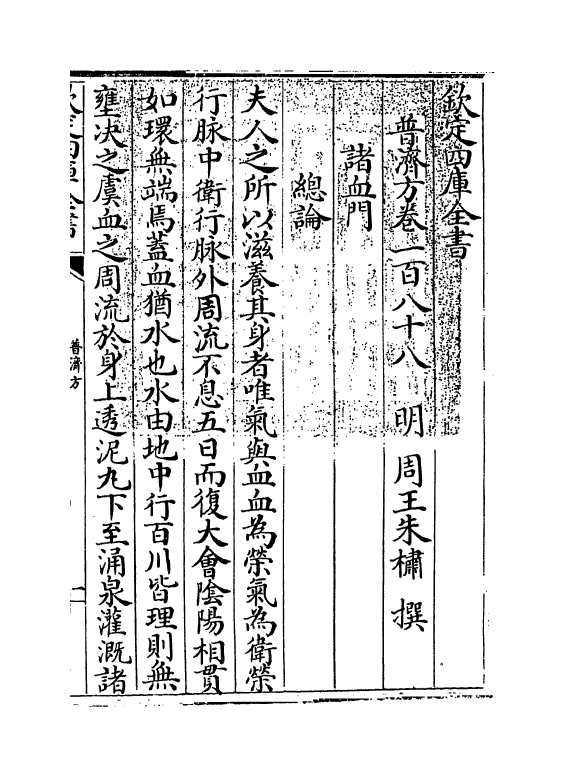 欽定四庫全書
普濟方卷一百八十八 明 周王朱橚 撰
諸血門
總論
夫人之所以滋養其身者唯氣與血血為榮氣為衛榮
行脉中衛行脉外周流不息五日而復大會陰陽相貫
如環無端焉蓋血猶水也水由地中行百川皆理則無
壅決之虞血之周流於身上透泥九下至涌泉灌溉諸
欽定四庫全書
普濟方
一